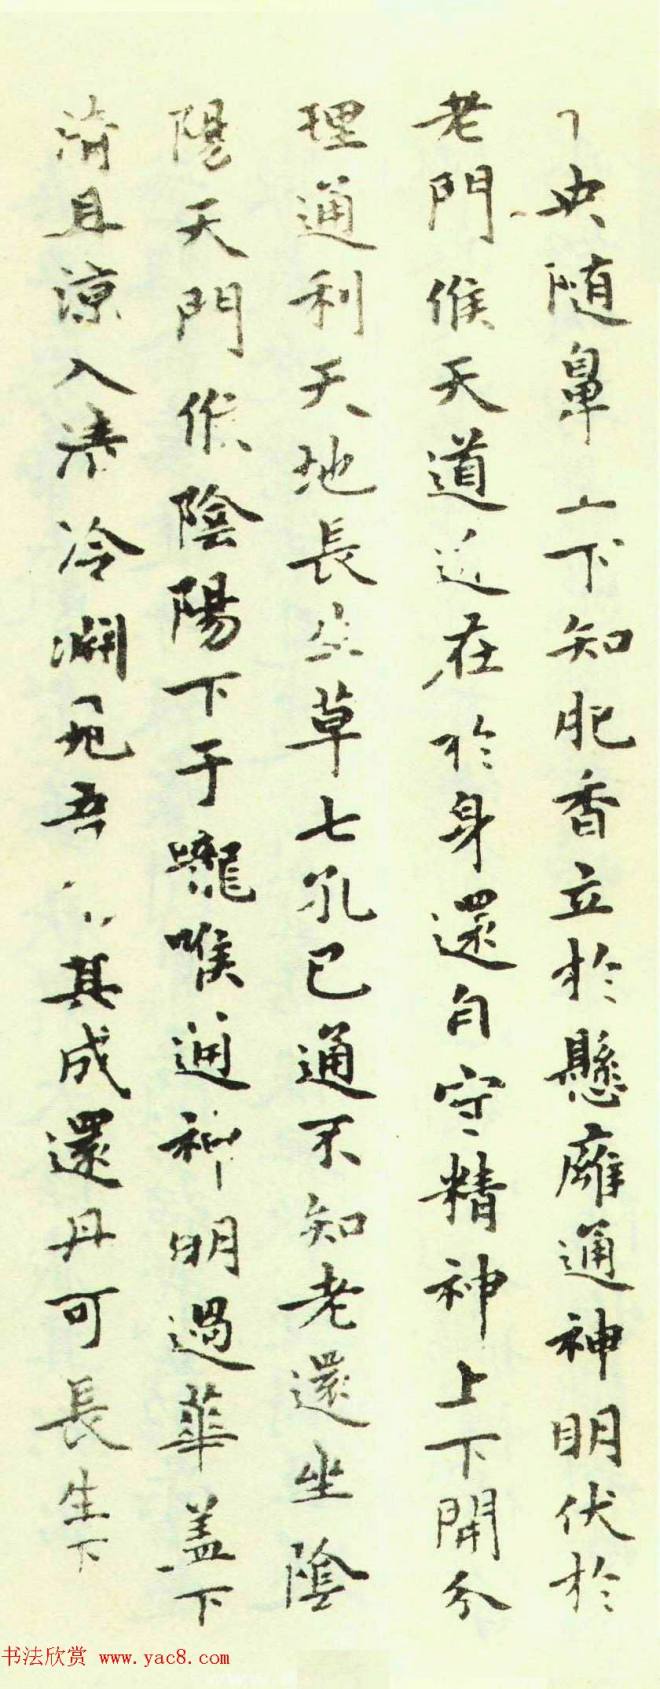 央随鼻上下知肥香立於懸廱通神明伏於
老門候天道近在於身還自守精神上下開分
理通利天地長生草七孔已通不知老還坐陰
陽天門候陰陽下于嚨喉通神明過華盖下
清且涼入清冷淵見吾其成還丹可長生下
书法欣赏 www.yac8.com